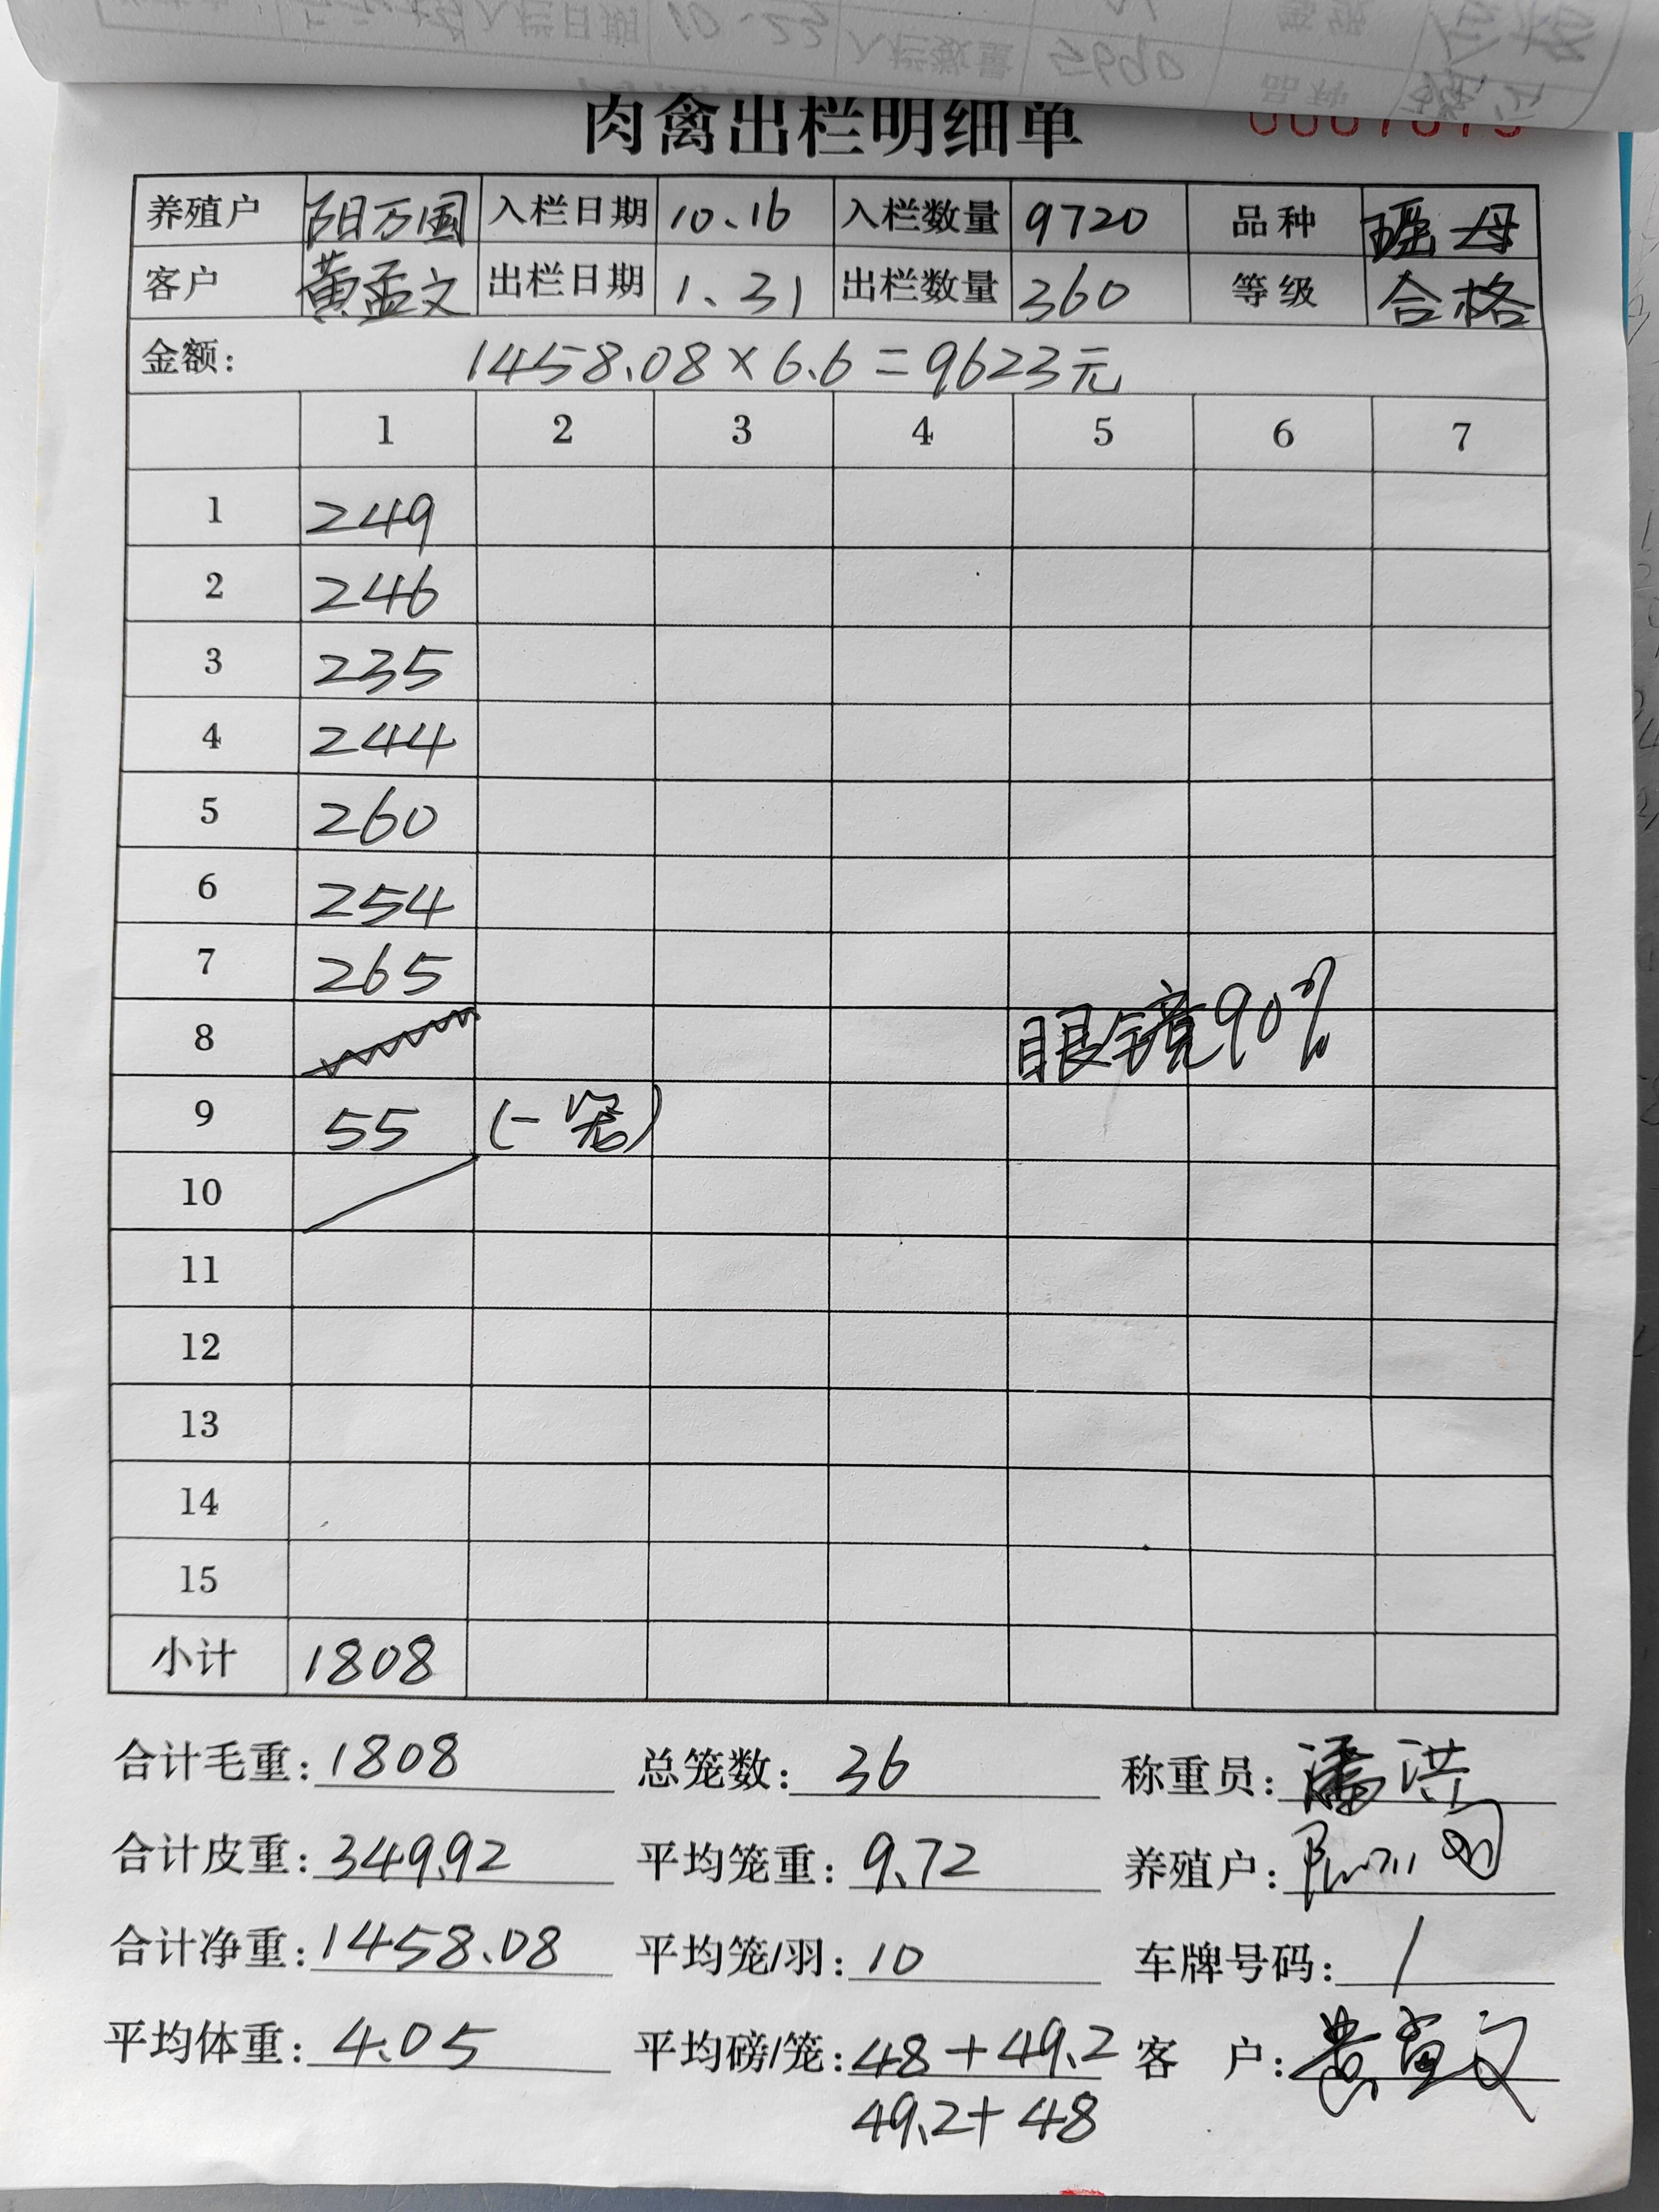 肉禽出栏明细单
养殖户 阳万国 入栏日期 10.16 入栏数量 9720 品种 瑶母
客户 黄孟文 出栏日期 1.31 出栏数量 360 等级 合格
金额: 1458.08×6.6=9623元
1 2 3 4 5 6 7
1 249
2 246
3 235
4 244
5 260
6 254
7 265
8 眼镜90%
9 55 (一笼)
10
11
12
13
14
15
小计 1808
合计毛重: 1808 总笼数: 36 称重员: 潘洪
合计皮重: 349.92 平均笼重: 9.72 养殖户:
合计净重: 1458.08 平均笼/羽: 10 车牌号码: /
平均体重: 4.05 平均磅/笼: 48+49.2 客户: 黄孟文
49.2+48